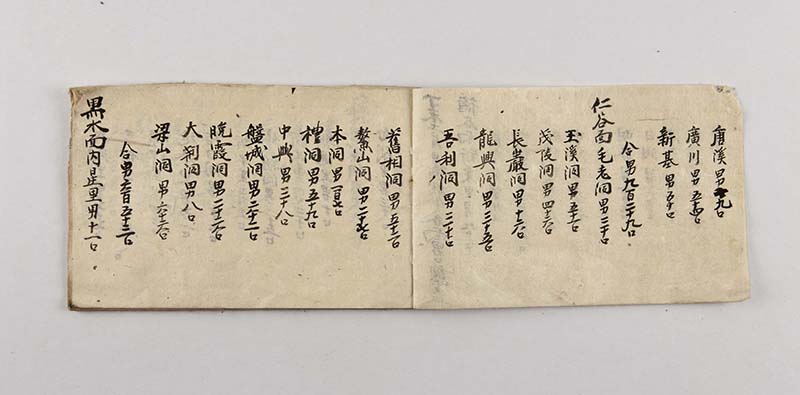 唐溪男十九口
廣川男五十四口
新基男五十口
合男九百二十九口
仁谷面毛老洞男三十口
玉溪洞男五十一口
茂陵洞男四十六口
長巖洞男十六口
龍興洞男二十五口
吾利洞男三十口
舊相洞男五十二口
鰲山洞男二十七口
本洞男百七口
禮洞男五十九口
中興男三十八口
盤城洞男二十二口
晩霞洞男二十六口
大利洞男八口
梁山洞男六十六口
合男六百五十三口
黑水面內是里男十一口